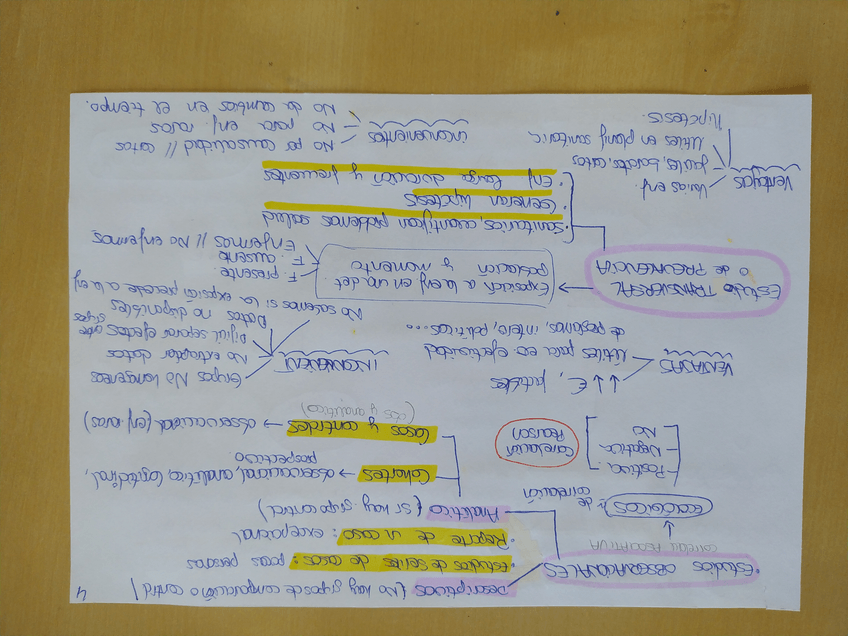 4
Descriptivos (No hay grupos de comparación o control)
• Estudios OBSERVACIONALES
• Estudios de series de casos: pocas personas
• Reporte de un caso: excepcional
Analítico (si hay grupo control)
Cohortes → observacional, analítico, longitudinal, prospectivo
Casos y controles → observacional (enf raras)
(dos y analítico)
ecológicos de correlación
- Positiva
- Negativa
- No
Correlación
Pearson
VENTAJAS
↓↓ €, factibles
Útiles para ver efectividad
de programas, interv, políticas...
INCONVENIENT
Grupos No homogéneos
No extrapolar datos
Difícil separar efectos
Datos no disponibles
No sabemos si la exposición precede a la enf
Estudio TRANSVERSAL
o de PREVALENCIA
Exposición a la enf en una det
población y momento
F. presente
F. ausente
Enfermos // No enfermos
• Sanitarios, cuantifican problemas salud
• Generan hipótesis
• Enf larga duración y frecuentes
Ventajas
Varias enf.
fáciles, baratos, cortos
Útiles en planif sanitaria
Hipótesis.
inconvenientes
No por causalidad //
No para enf. raras
No da cambios en el tiempo.